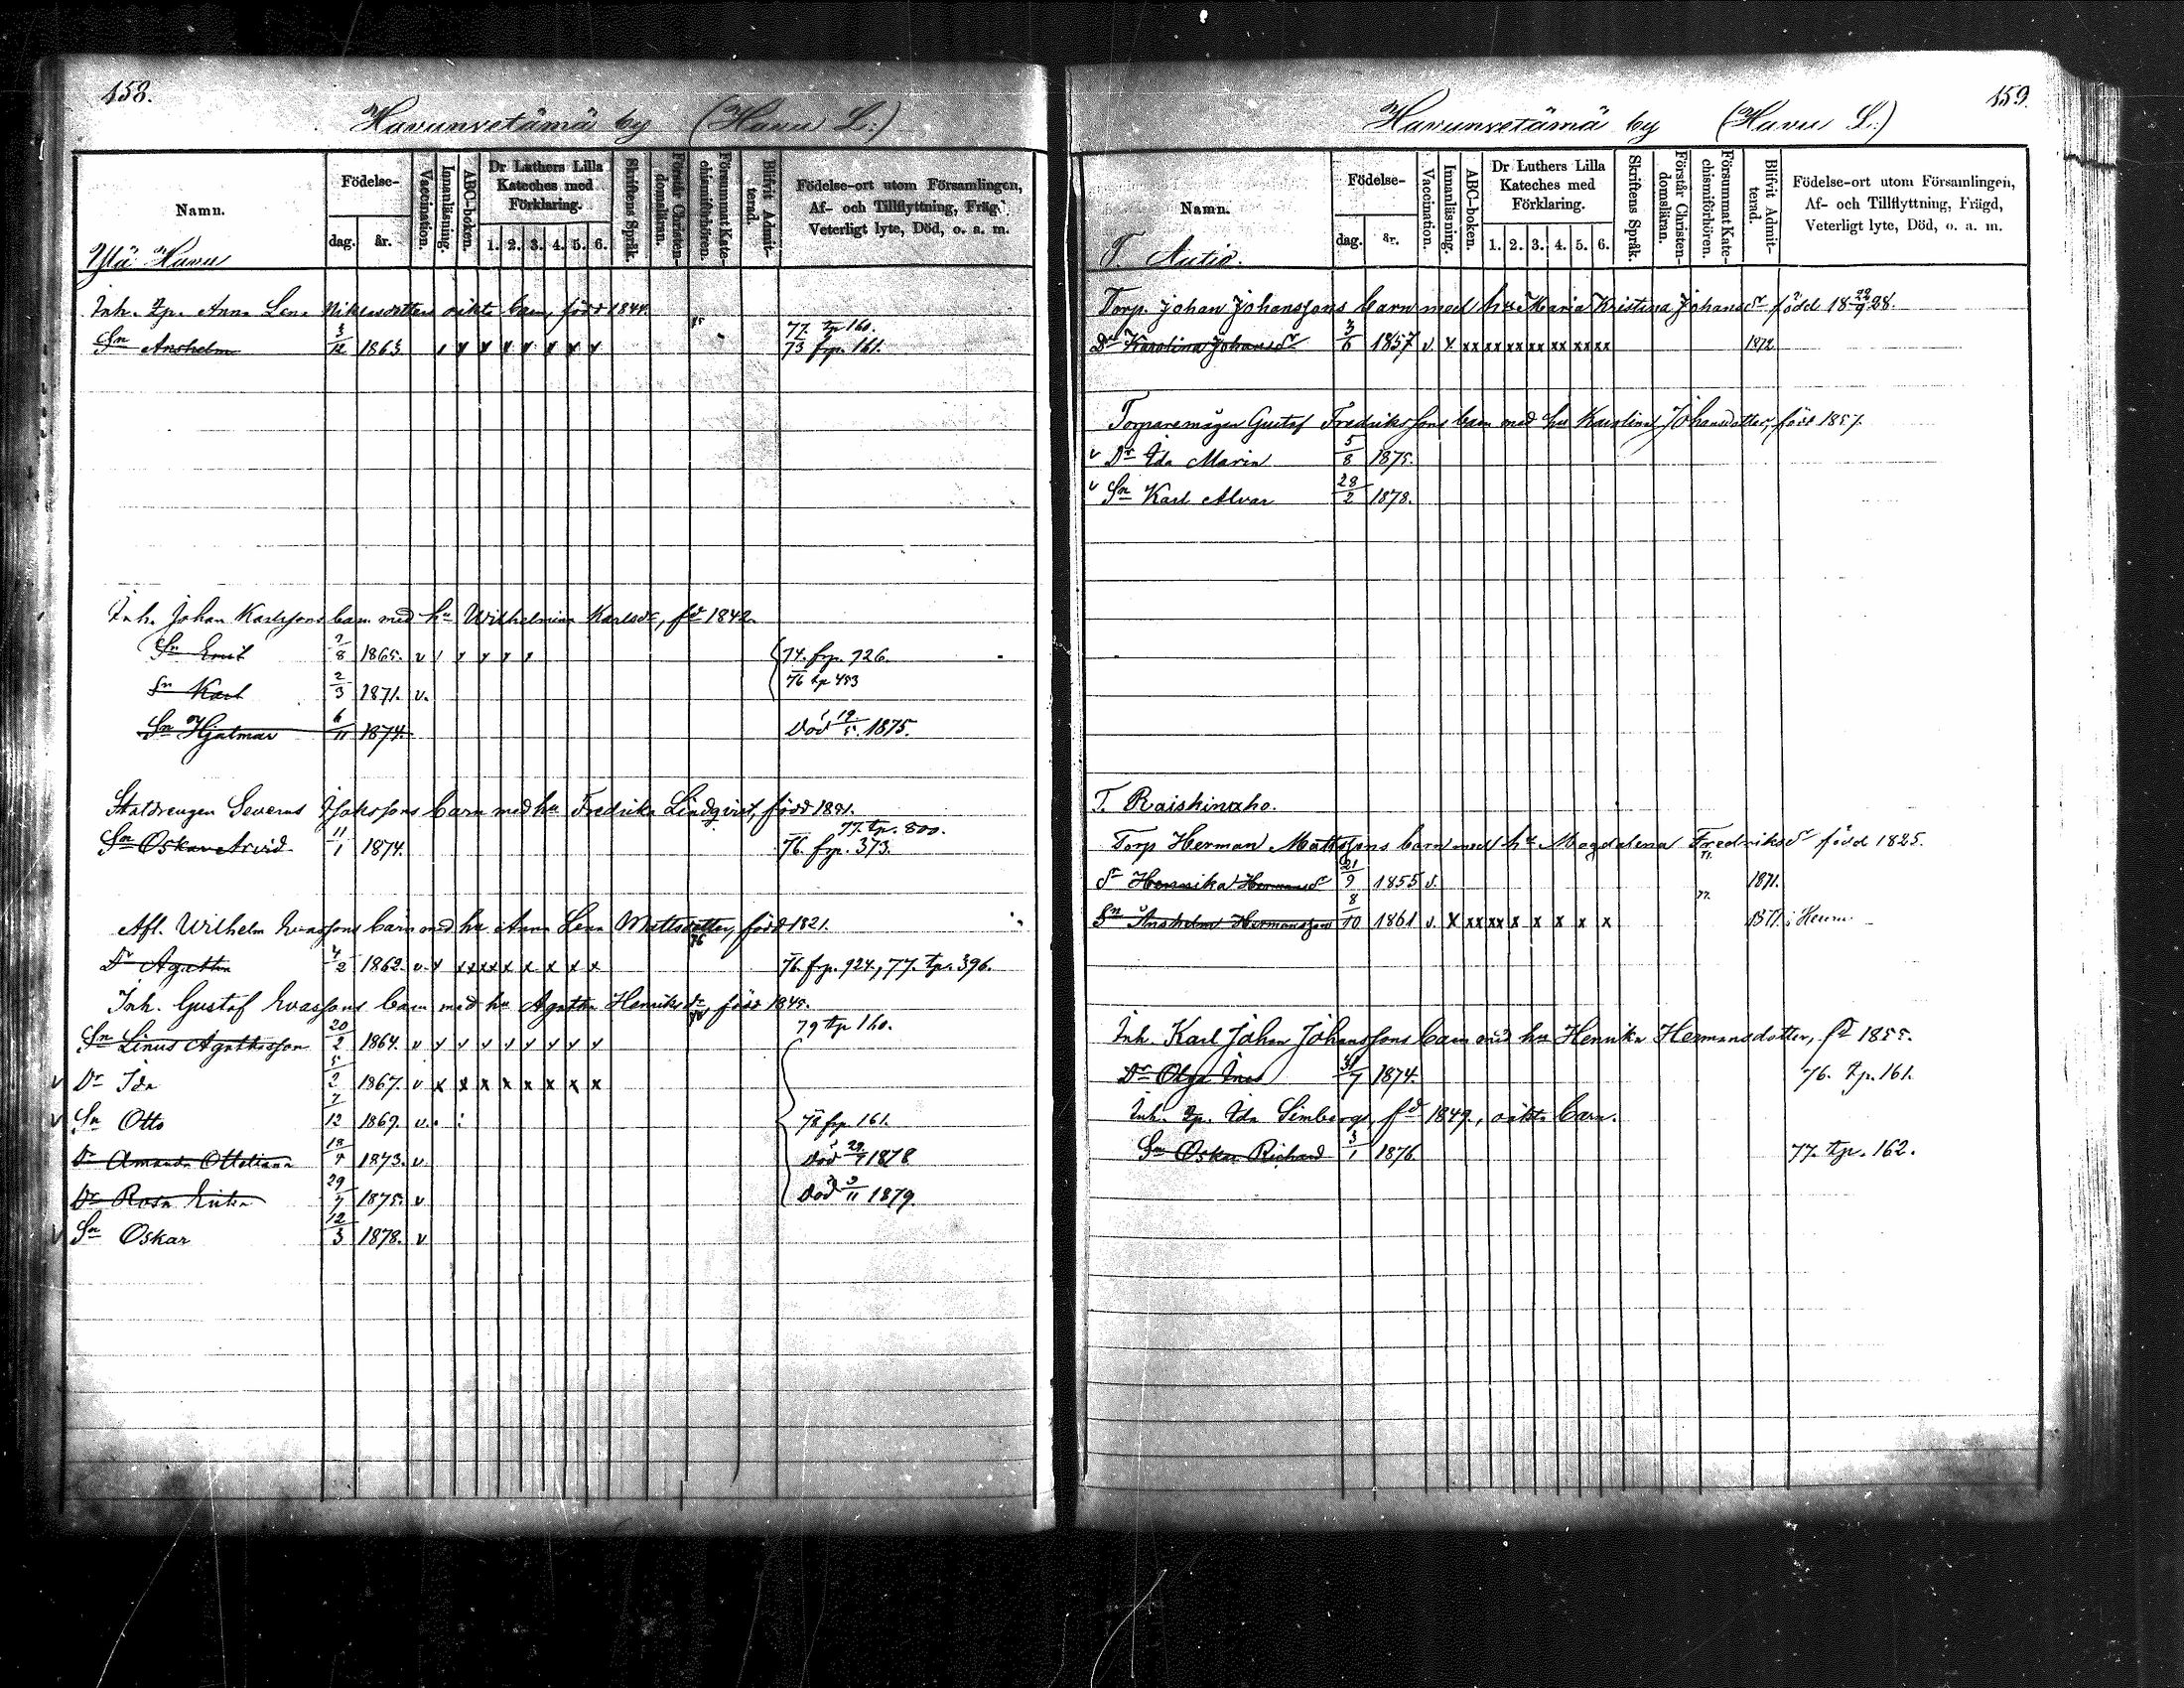 158.
Havunvetämä by (Havu L:)
Namn. Födelse- dag. år. Vaccination. Innanläsning. ABC-boken. Dr Luthers Lilla Kateches med Förklaring. 1. 2. 3. 4. 5. 6. Skriftens Språk. Förstår Christendomsläran. Försummat Katechismiförhören. Blifvit Admitterad. Födelse-ort utom Församlingen, Af- och Tillflyttning, Frägd, Veterligt lyte, Död, o. a. m.
Ylä Havu
Inh. qp. Anna Lena Niklasdotters oäkta barn, född 1844.
Sn Anshelm 3/12 1863 77. tp 160. 73 frp. 161.
Inh. Johan Karlssons barn med hu Wilhelmina Karlsdr, fd 1842.
Sn Emil 7/8 1865. v 74. frp. 726.
Sn Karl 2/3 1871. v. 76 tp 483
Sn Hjalmar 6/11 1874. död 19/5. 1875.
Statdrengen Severus Isakssons barn med hu Fredrika Lindqvist, född 1881.
77. tp. 800.
Sn Oskar Arvid 11/1 1874. 76. frp. 373.
Afl. Wilhelm Evassons barn med hu Anna Lena Mattsdotter, född 1821.
Dr Agatha 4/2 1862. v. x xx xx x x x x x 76. frp. 924, 77. tp. 396.
Inh. Gustaf Evassons barn med hu Agatha Henriksdr född 1845.
Sn Linus Agathasson 20/2 1864. v v v v v v v v v 79 tp 160.
v Dr Ida 5/2 1867. v x x x x x x x x
v Sn Otto 7/12 1869. v. 78 frp 161.
Dr Amanda Ottiliana 18/4 1873. v. död 29/7 1878
Dr Rosa Erika 29/7 1875. v död 3/11 1879
v Sn Oskar 12/3 1878. v
159.
Havunvetämä by (Havu L:)
Namn. Födelse- dag. år. Vaccination. Innanläsning. ABC-boken. Dr Luthers Lilla Kateches med Förklaring. 1. 2. 3. 4. 5. 6. Skriftens Språk. Förstår Christendomsläran. Försummat Katechismiförhören. Blifvit Admitterad. Födelse-ort utom Församlingen, Af- och Tillflyttning, Frägd, Veterligt lyte, Död, o. a. m.
T. Autio.
Torp. Johan Johanssons barn med hu Maria Kristina Johansdr född 18 22/9 28.
Dr Karolina Johansdr 3/6 1857 v. x xx xx xx xx xx xx xx 1872
Torparemågen Gustaf Fredrikssons barn med hu Karolina Johansdotter, född 1857.
v Dr Ida Maria 5/8 1875.
v Sn Karl Alvar 28/2 1878.
T. Raishinaho.
Torp Herman Mattssons barn med hu Magdalena Fredriksdr född 1825.
Dr Henrika Hermansdr 21/9 1855 v. 1871.
Sn Anshelm Hermansson 8/10 1861 v. x xx xx x x x x x 77. 1877. i
Inh. Karl Johan Johanssons barn med hu Henrika Hermansdotter, fd 1855.
Dr Olga Ines 31/7 1874. 76. tp. 161.
Inh. qp. Ida Simberg, fd 1849, oäkta barn.
Sn Oskar Richard 3/1 1876. 77. tp. 162.